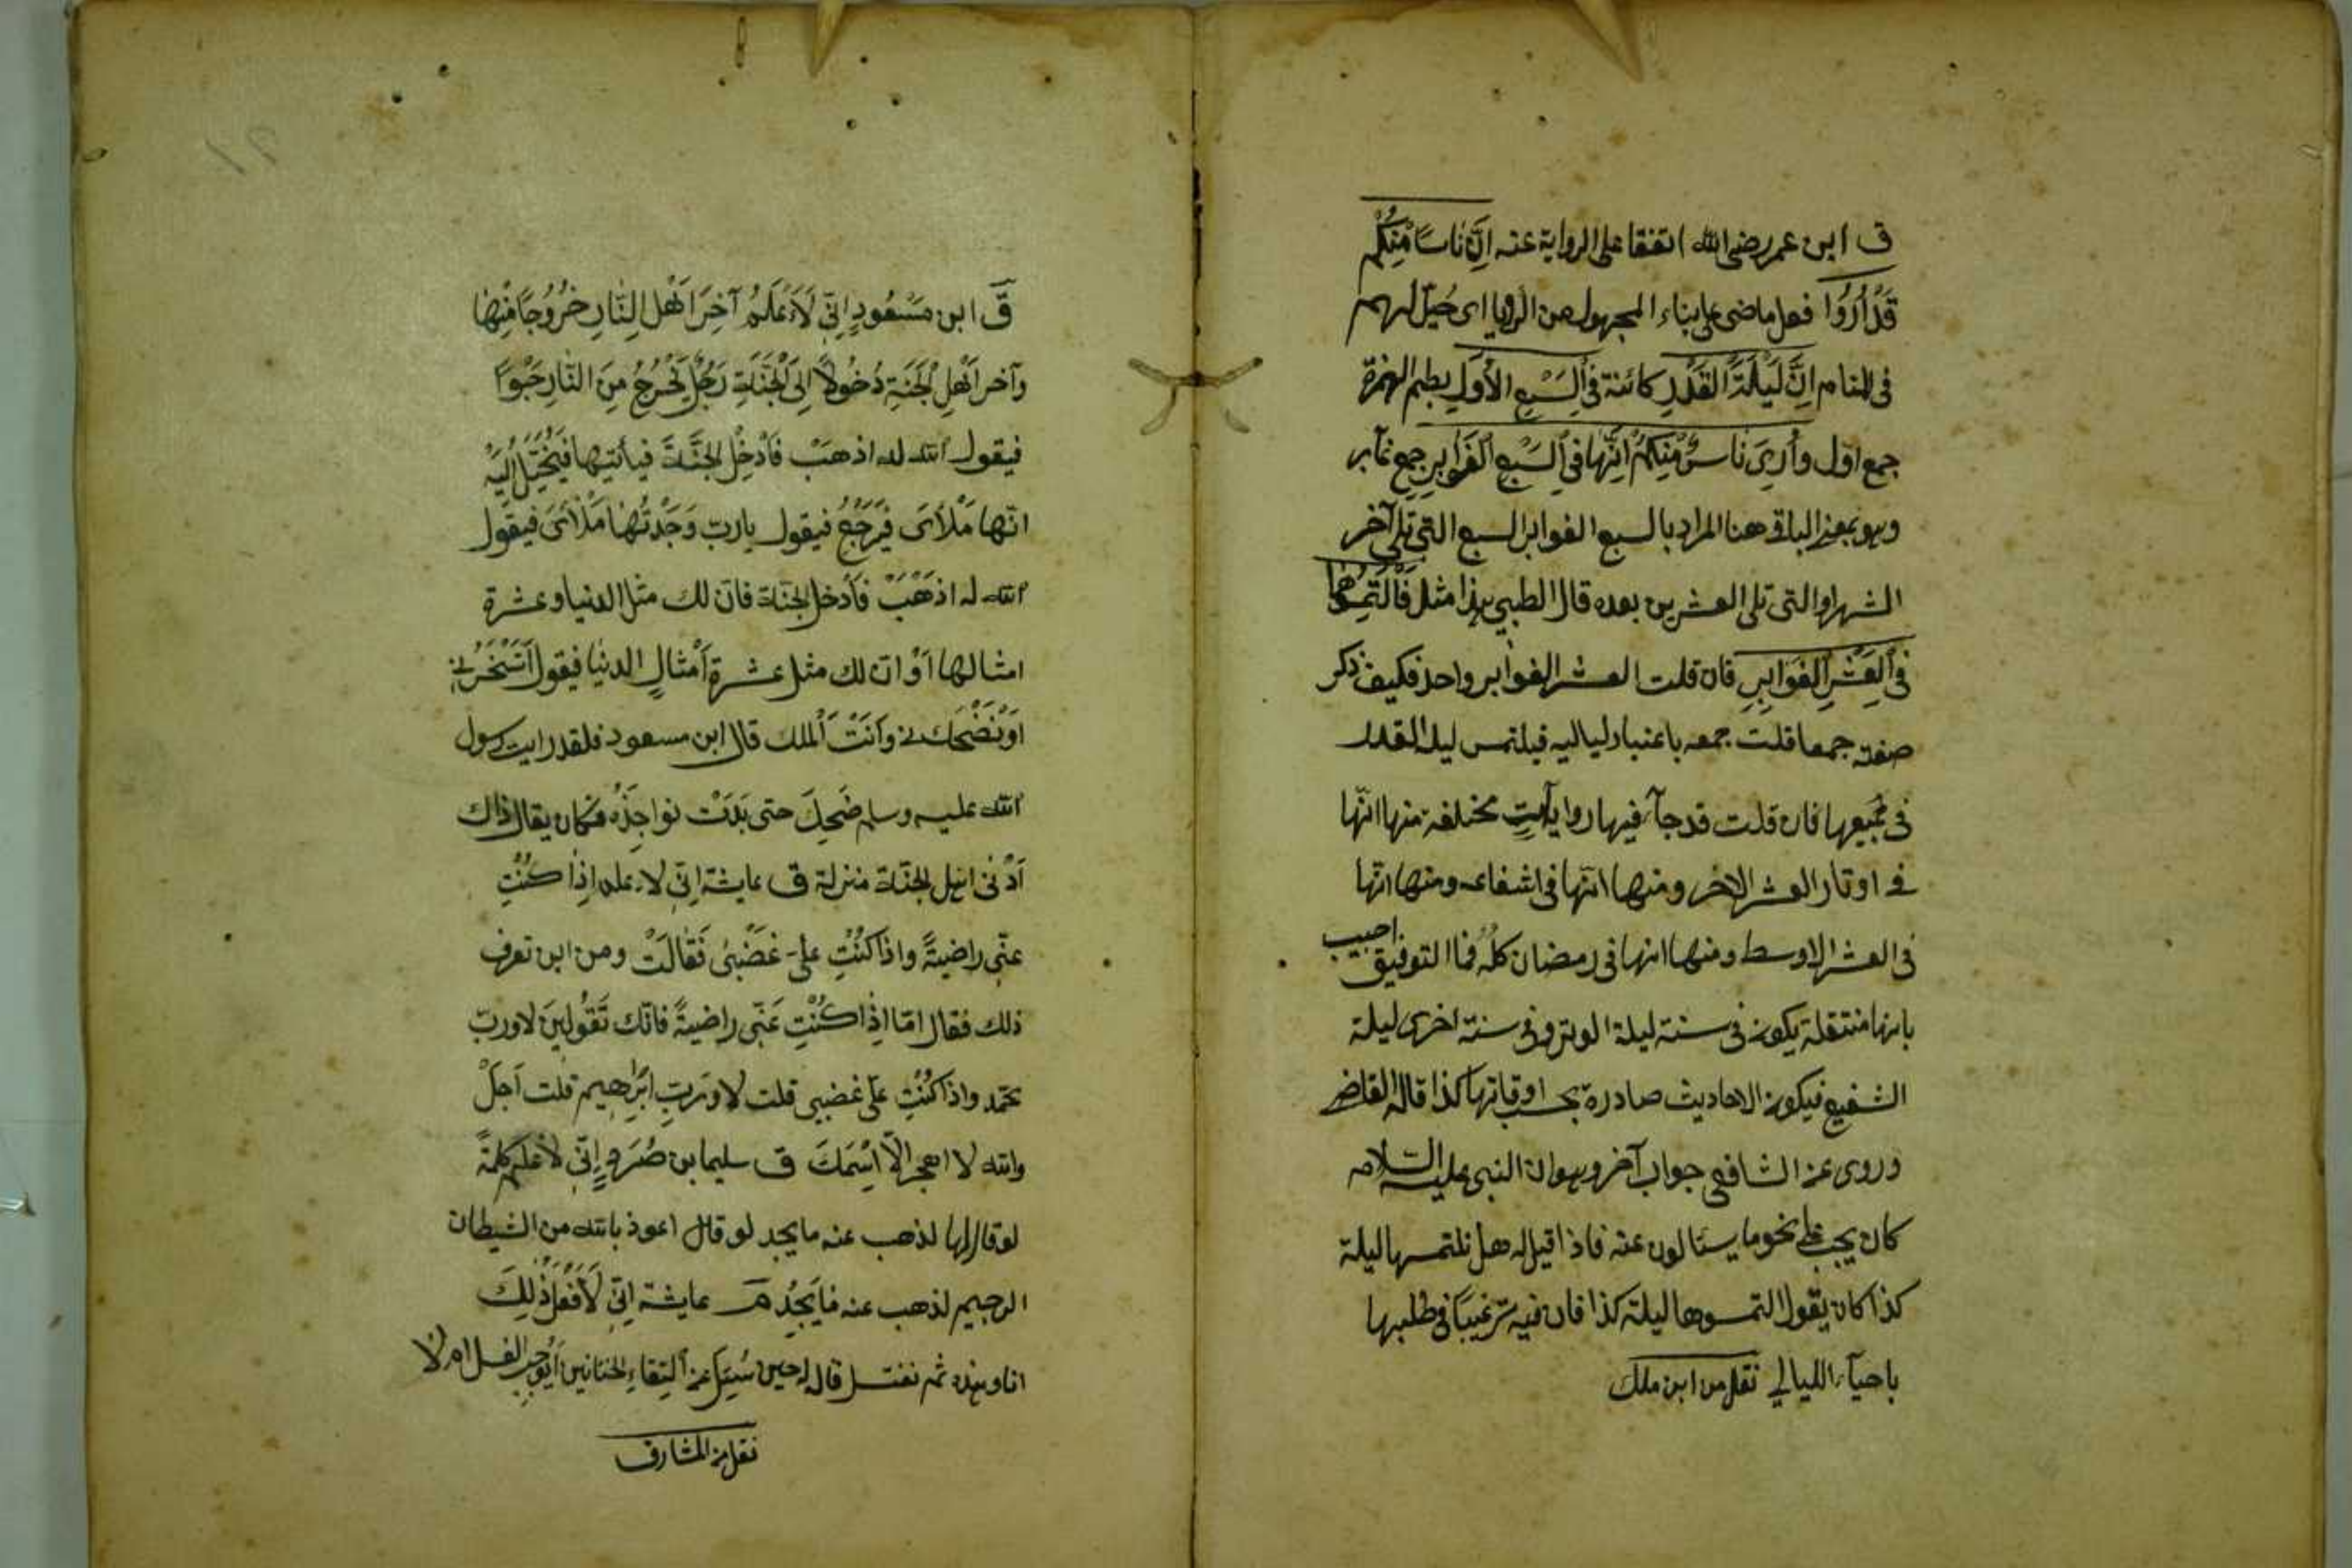 ق ابن عمر رضي الله اتفقا على الرواية عنه اِنَّ نَاسًا مِنْكُمْ
قَدْ اُرُوا فعل ماضى على بناء المجهول من الرؤيا اى خُيّل لهم
فى المنام اِنَّ لَيْلَةَ الْقَدْرِ كائنة فِى السَّبْعِ الْأُوَلِ بضم الهمزة
جمع اوّل وأُرِىَ نَاسٌ مِنْكُمْ اَنَّهَا فِى السَّبْعِ الْغَوَابِرِ جمع غابر
وهو بمعنى الباقى هنا المراد بالسبع الغوابر السبع التى تلى آخر
الشهر او التى تلى العشرين بعده قال الطيبي هذا مثل فَالْتَمِسُوهَا
فِى الْعَشْرِ الْغَوَابِرِ فان قلت العشر الغوابر واحد فكيف ذكر
صفته جمعا قلت جمعه باعتبار لياليه فيلتمس ليلة القدر
فى جميعها فان قلت قد جآء فيها روايات مختلفة منها انّها
فى اوتار العشر الاخر ومنها انّها فى اشفاعه ومنها انّها
فى العشر الاوسط ومنها انها فى رمضان كلّه فما التوفيق اجيب
بانها منتقلة يكون فى سنة ليلة الوتر وفى سنة اخرى ليلة
الشفع فيكون الاحاديث صادرة بحسب اوقاتها كذا قاله القاضى
وروى عن الشافعى جواب آخر وهو ان النبى عليه السلام
كان يجيب على نحو ما يسئالون عنه فاذا قيل له هل نلتمسها ليلة
كذا كان يقول التمسوها ليلة كذا فان فيه ترغيبًا فى طلبها
باحيآء الليالي نقل من ابن ملك
قَ ابن مَسْعُودٍ اِنِّى لَاَعْلَمُ آخِرَ اَهْلِ النَّارِ خُرُوجًا مِنْهَا
وآخر اَهْلِ الْجَنَّةِ دُخُولاً اِلَى الْجَنَّةِ رَجُلٌ يَخْرُجُ مِنَ النَّارِ حَبْوًا
فيقول الله له اذهَبْ فَادْخُلِ الْجَنَّةَ فيأتيها فَيُخَيَّلُ اِلَيْهِ
انّها مَلْأَى فَيَرْجِعُ فيقول يارب وَجَدْتُهَا مَلْأَىَ فيقول
الله له اذْهَبْ فَادخل الجنّة فان لك مثل الدنيا وعشرة
امثالها أوْ ان لك مثل عشرة أَمْثَالِ الدنيا فيقول أَتَسْخَرُ بِى
اَوْتَضْحَك بى وَاَنْتَ الْمَلِك قال ابن مسعود فلقد رايت رسول
الله عليه وسلم ضَحِكَ حتى بَدَتْ نواجِذُه فكان يقال ذاك
اَدْنى اهل الجنّة منزلة ق عايشة اِنّى لاعلم اِذَا كُنْتِ
عنّى راضيةً واذا كُنْتِ علىّ غَضْبَى فَقَالَتْ ومن اين تعرف
ذلك فقال امّا اِذَا كُنْتِ عَنّى راضيةً فانّك تَقُولِينَ لا وربّ
محمّد واذا كُنْتِ علىّ غضبى قلت لا وَرَبِّ اِبْرَاهِيم قلت اَجَلْ
والله لا اهجر اِلّا اسْمَكَ ق سليمان صُرَدٍ إِنّى لَاَعْلَمُ كَلِمَةً
لو قالها لذهب عنه ما يجد لو قال اعوذ بالله من الشيطان
الرجيم لذهب عنه مَا يَجِدُ مَ عايشة اِنّى لَاَفْعَلُ ذَلِكَ
انا وهذه ثم نغتسل قاله حين سُئِلَ عن اَلْتِقَاءِ الختانين أَيُوجِبُ الغسل ام لا
نقل من المشارق